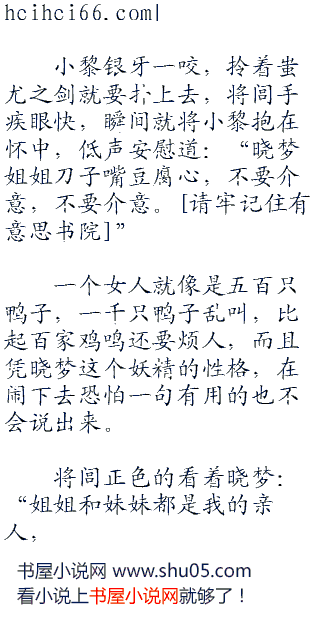 hcihci66.com|
小黎银牙一咬，拎着蚩
尤之剑就要扑上去，将闾手
疾眼快，瞬间就将小黎抱在
怀中，低声安慰道：“晓梦
姐姐刀子嘴豆腐心，不要介
意，不要介意。[请牢记住有
意思书院]”
一个女人就像是五百只
鸭子，一千只鸭子乱叫，比
起百家鸡鸣还要烦人，而且
凭晓梦这个妖精的性格，在
闹下去恐怕一句有用的也不
会说出来。
将闾正色的看着晓梦：
“姐姐和妹妹都是我的亲
人，
书屋小说网 www.shu05.com
看小说上书屋小说网就够了！